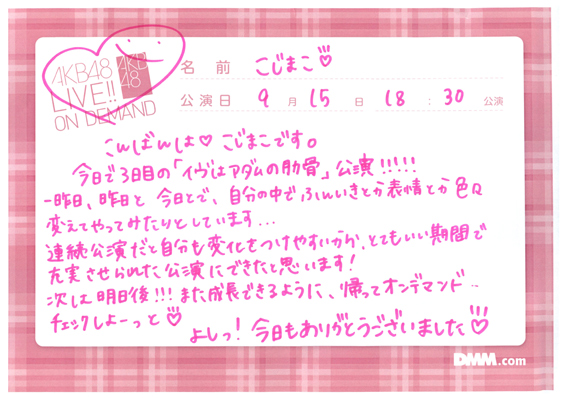 AKB48
LIVE!!
ON DEMAND
AKB
48
名前 こじまこ♡
公演日 9月15日 18:30公演
こんばんは♡こじまこです。
今日で3日目の「イヴはアダムの肋骨」公演!!!!!
一昨日、昨日と今日とで、自分の中でふんいきとか表情とか色々
変えてやってみたりとしています...
連続公演だと自分も変化をつけやすいから、とてもいい期間で
充実させられた公演にできたと思います!
次は明日後!!! また成長できるように、帰ってオンデマンド..
チェックしよーっと♡
よしっ!今日もありがとうございました♡
DMM.com